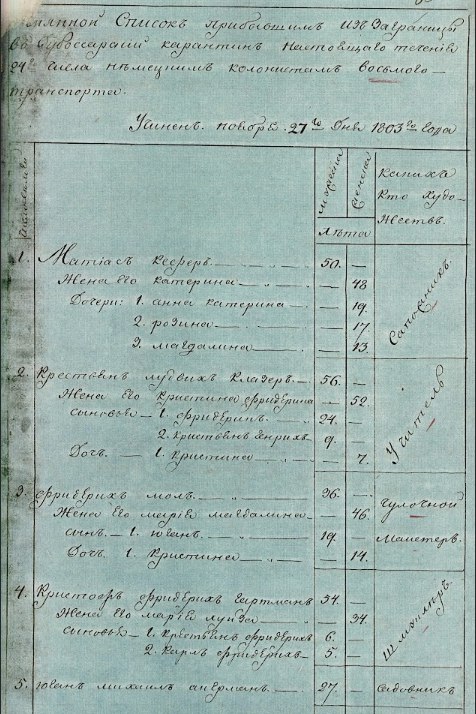 Имянной Списокъ прибывшимъ изъ Заграницы
въ Дубоссарский карантинъ настоящаго течения
24го числа немецкимъ колонистамъ восьмого
транспорта.
Учиненъ. ноября. 27го Дня 1803го года
мужеска
женска
лѣта
какихъ
кто худо-
жествъ.
1. Матіасъ Кеферъ. 50. —
Жена его катерина — 48
Дочери: 1. анна катерина — 19.
2. розина — 17.
3. магдалина — 13.
Сапожникъ.
2. Крестьянъ лудвихъ Класеръ. 56. —
Жена его кристина фридерика — 52
сыновья — 1. фридерихъ. 24. —
2. кристьянъ генрихъ. 9. —
Дочь. — 1. кристина — 7.
Учитель
3. фридерихъ молъ. 36. —
Жена его марія магдалина — 46.
сынъ. — 1. юганъ. 19. —
Дочь. 1. Кристина — 14.
чулочной
Маистеръ.
4. Кристофъ фридерихъ гартманъ 34. —
Жена его марія луиза — 34.
сыновья — 1. крестьянъ фридерихъ 6. —
2. Карлъ фридерихъ. 5. —
5. юганъ михаилъ ангерманъ. 27. —
садовникъ